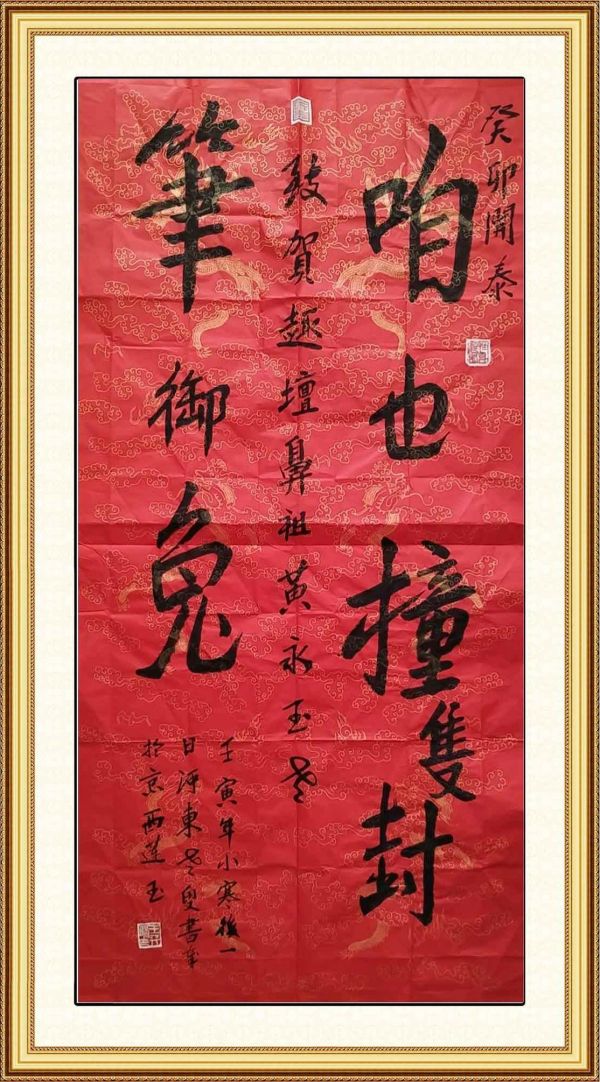 癸卯開泰
咱也撞隻封
致賀趣壇鼻祖黄永玉老
筆御兔
壬寅年小寒後一
日河東老叟書
於京西蓮玉